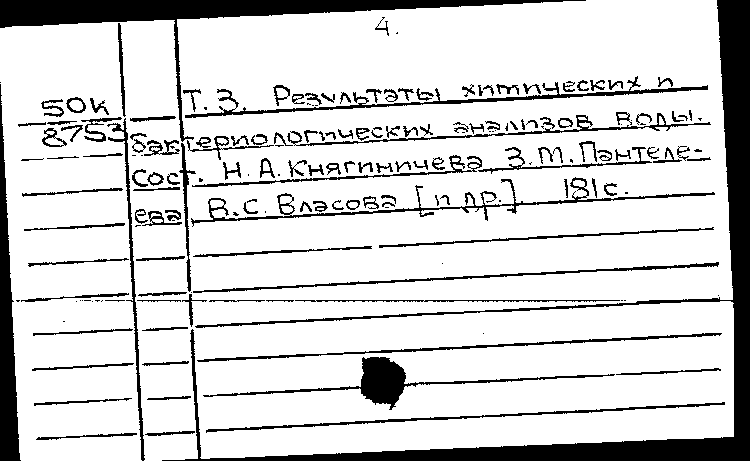 4.
50к
8753
Т. 3. Результаты химических и
бактериологических анализов воды.
Сост. Н. А. Княгиничева, З. М. Пантеле-
ева, В. С. Власова [и др.] 181 с.